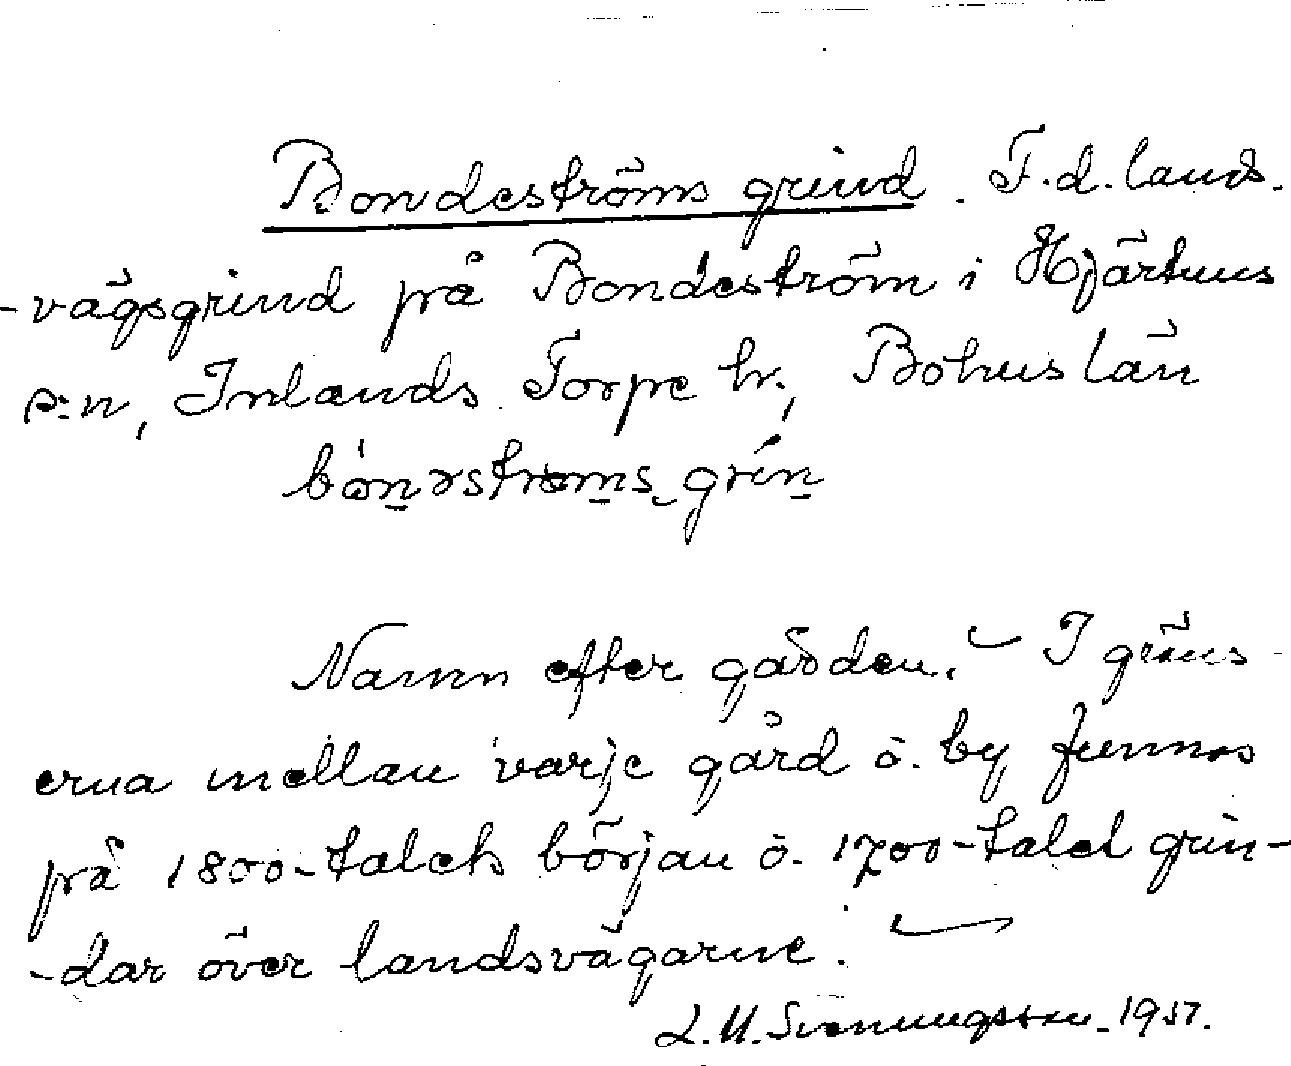 Bondeströms grind. F.d. lands-
-vägsgrind på Bondeström i Hjärtums
s:n, Inlands Torpe hr., Bohuslän
bon̠əstrøm̠s grín̠
Namn efter gården. I gräns-
erna mellan varje gård o. by funnos
på 1800-talets början o. 1700-talet grin-
-dar över landsvägarne.
L. M. Svenungsson. 1957.